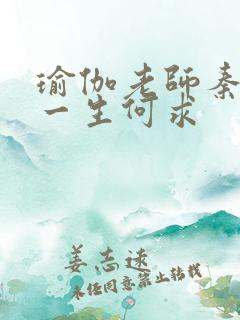 瑜伽老師秦
一生何求
姜志遠
未经同意禁止转载